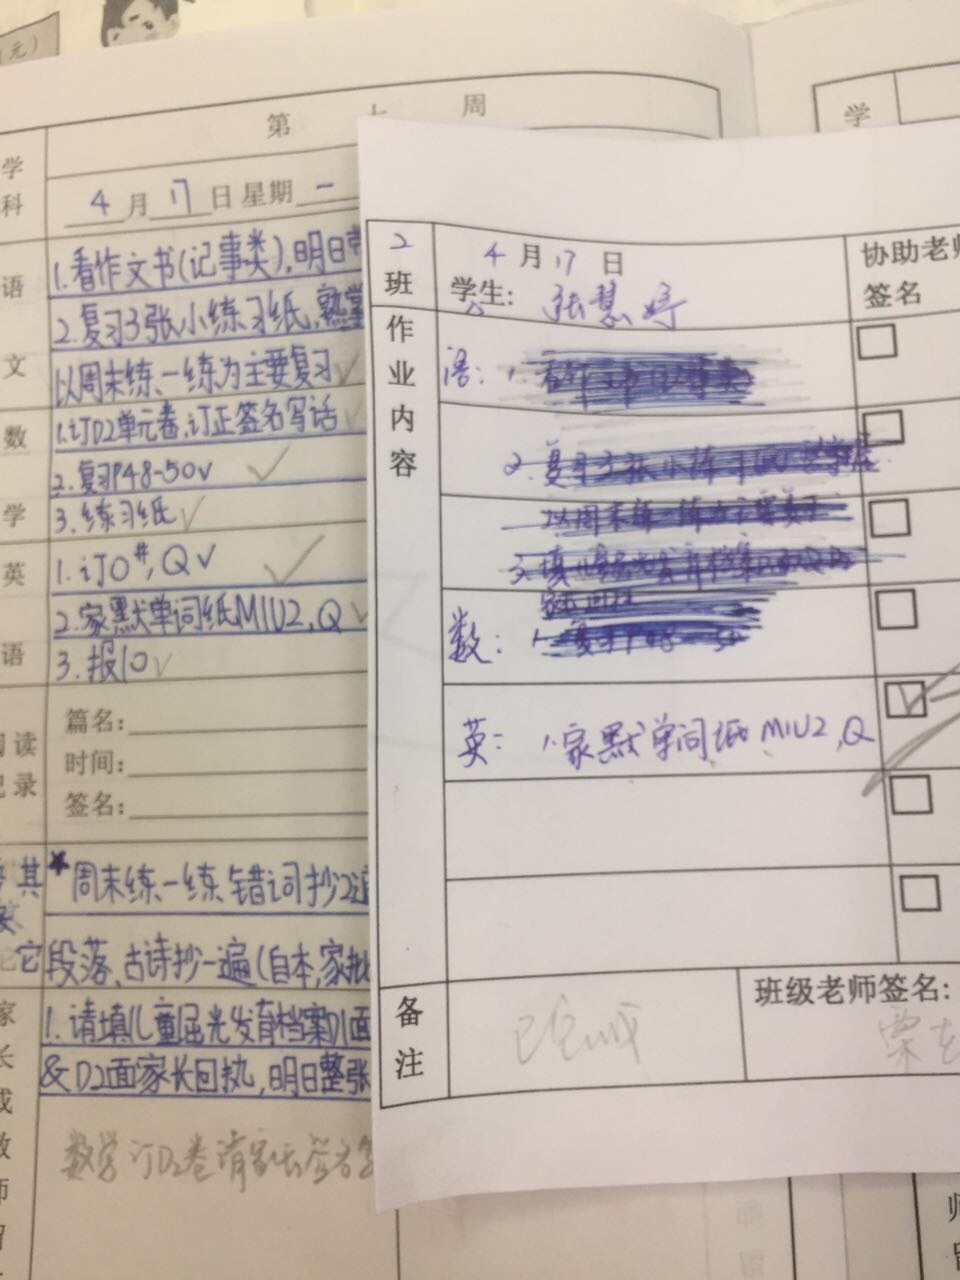 元)
第 七 周
学科
4月17日星期一
语文
1.看作文书(记事类),明日带
2.复习3张小练习纸,熟掌
以周末练、一练为主要复习✓
数学
1.订D2单元卷,订正签名写话✓
2.复习P48-50✓ ✓
3.练习纸✓
英语
1.订0#,Q✓ ✓
2.家默单词纸M1U2,Q✓
3.报10✓
阅读记录
篇名:
时间:
签名:
其它
★周末练、一练、错词抄2遍
段落、古诗抄一遍(自本,家批
1.请填儿童屈光发育档案D1面
&D2面家长回执,明日整张
数学订D2卷请家长签名
学
2班
4月17日
学生:张慧婷
协助老师
签名
作业内容
语:1.
2.复习3张小练习纸
以周末练一练为主要复习
数:1.复习P48-50
英:1.家默单词纸M1U2,Q
备注
已完成
班级老师签名:
师